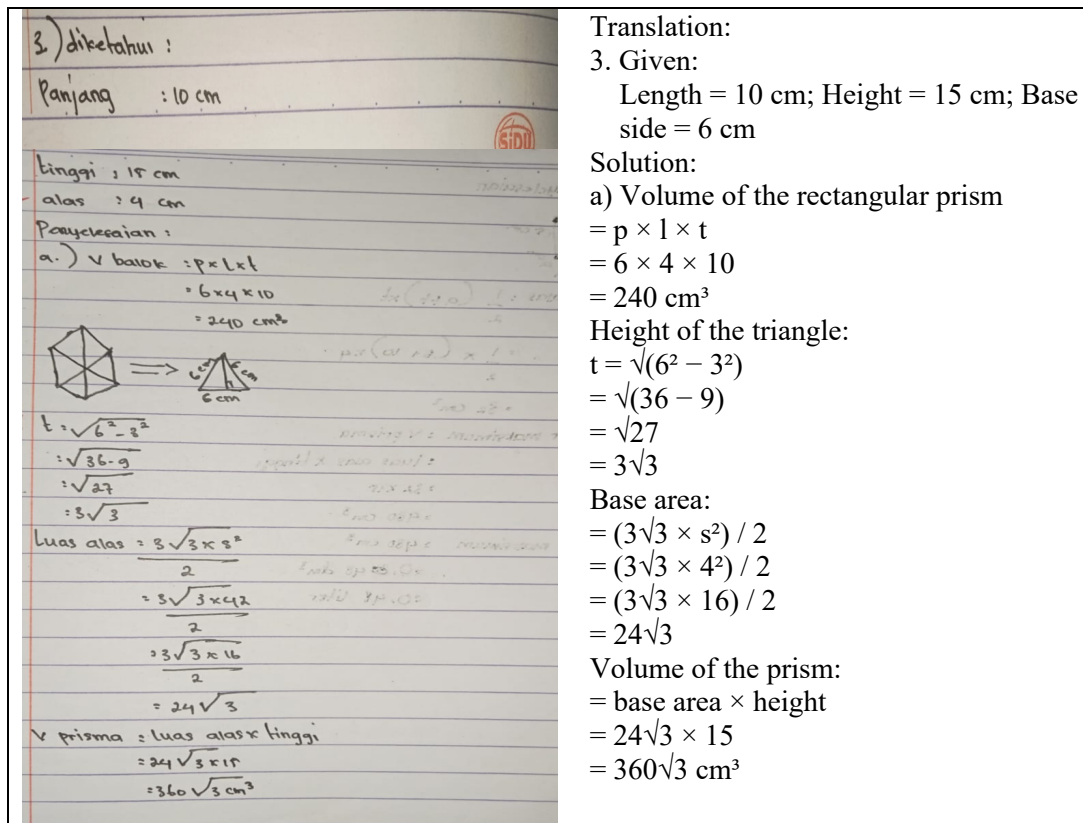 3.) diketahui :
Panjang : 10 cm
SiDU
tinggi : 15 cm
alas : 4 cm
Penyelesaian :
a.) V balok : p × l × t
= 6 × 4 × 10
= 240 cm³
6 cm 6 cm
6 cm
t = √6² - 3²
= √36 - 9
= √27
= 3√3
Luas alas = 3√3 × s²
2
= 3√3 × 42
2
= 3√3 × 16
2
= 24√3
V prisma = luas alas × tinggi
= 24√3 × 15
= 360√3 cm³
Translation:
3. Given:
Length = 10 cm; Height = 15 cm; Base
side = 6 cm
Solution:
a) Volume of the rectangular prism
= p × l × t
= 6 × 4 × 10
= 240 cm³
Height of the triangle:
t = √(6² − 3²)
= √(36 − 9)
= √27
= 3√3
Base area:
= (3√3 × s²) / 2
= (3√3 × 4²) / 2
= (3√3 × 16) / 2
= 24√3
Volume of the prism:
= base area × height
= 24√3 × 15
= 360√3 cm³